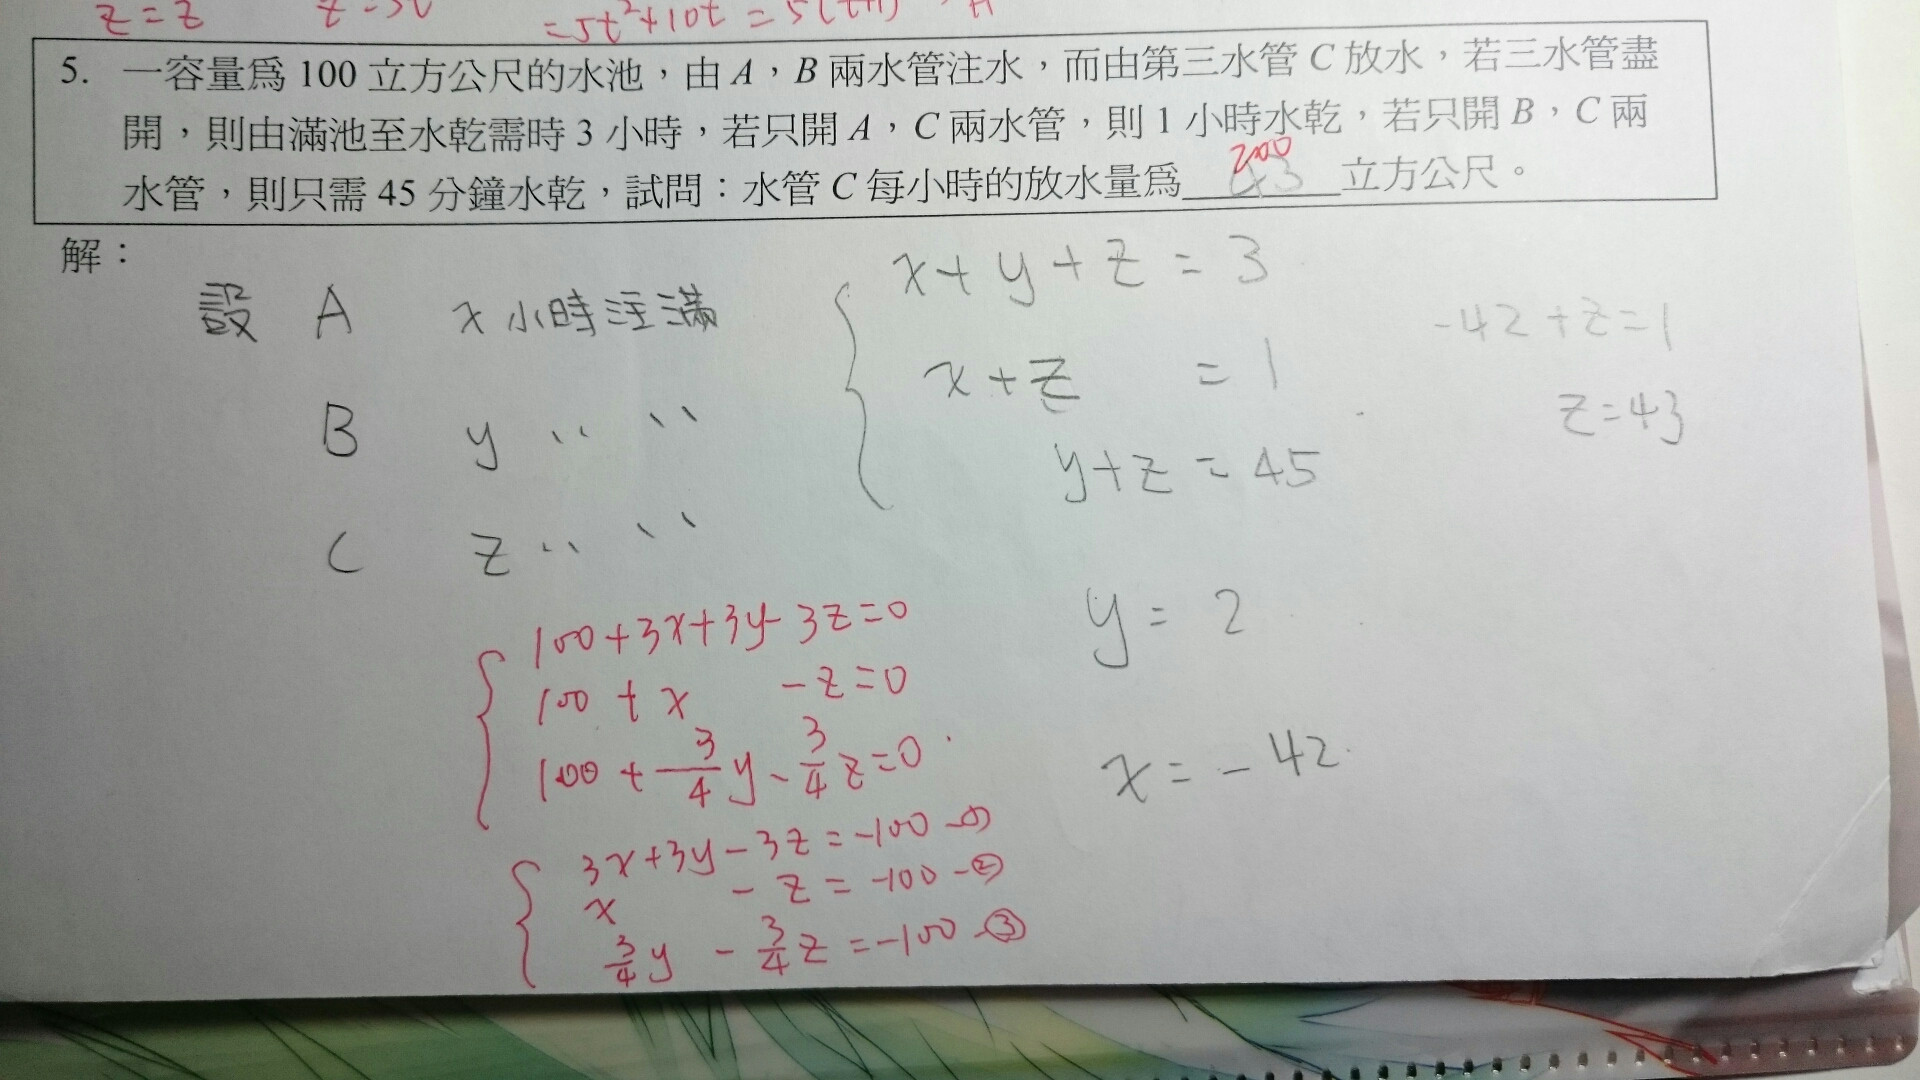 z=z
=5t²+10t=5(t+1)
5. 一容量為 100 立方公尺的水池，由 A，B 兩水管注水，而由第三水管 C 放水，若三水管盡
開，則由滿池至水乾需時 3 小時，若只開 A，C 兩水管，則 1 小時水乾，若只開 B，C 兩
水管，則只需 45 分鐘水乾，試問：水管 C 每小時的放水量為 43 立方公尺。
200
解：
設 A x 小時注滿
B y 〃 〃
C z 〃 〃
x+y+z=3
x+z =1
y+z=45
-42+z=1
z=43
y=2
x=-42
100+3x+3y-3z=0
100+x -z=0
100+3/4y-3/4z=0
3x+3y-3z=-100-①
x -z=-100-②
3/4y-3/4z=-100-③